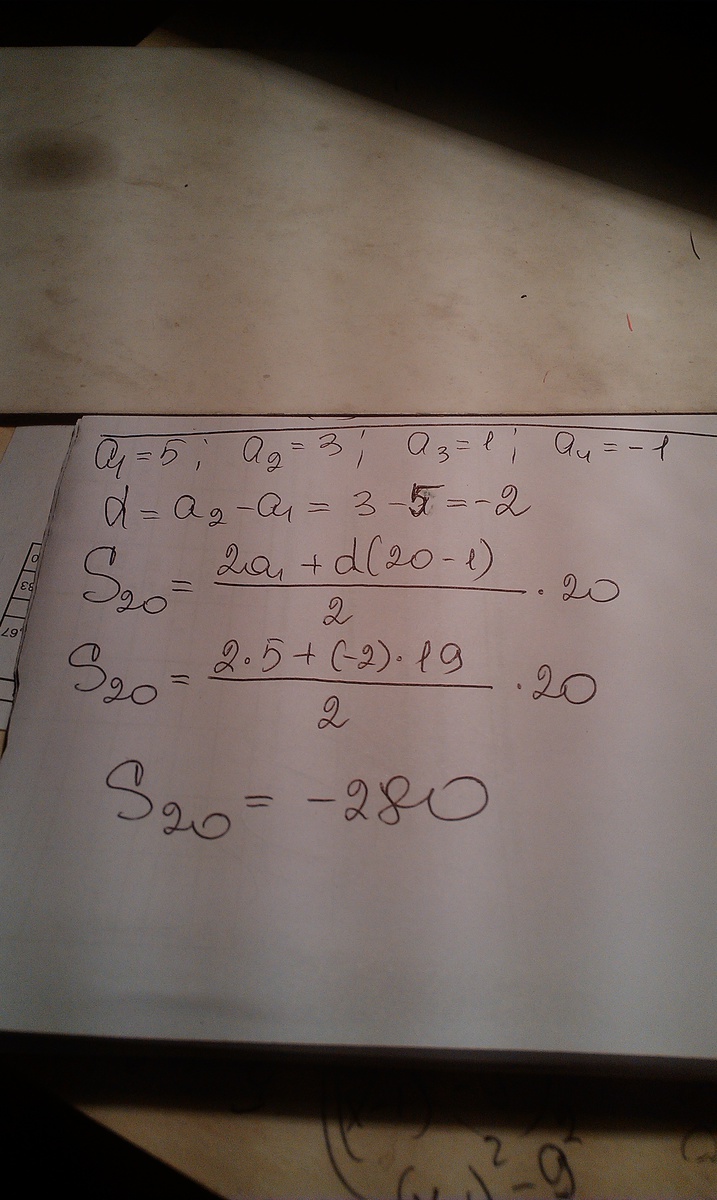 a₁ = 5; a₂ = 3; a₃ = 1; a₄ = -1
d = a₂ - a₁ = 3 - 5 = -2
S₂₀ = (2a₁ + d(20 - 1))/2 · 20
S₂₀ = (2·5 + (-2)·19)/2 · 20
S₂₀ = -280